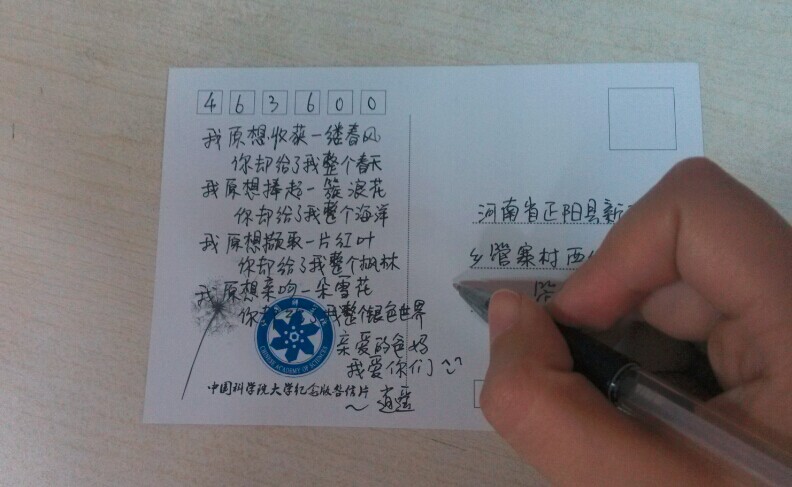 463600
我原想收获一缕春风
你却给了我整个春天
我原想捧起一簇浪花
你却给了我整个海洋
我原想撷取一片红叶
你却给了我整个枫林
我原想亲吻一朵雪花
你却给了我整个银色世界
亲爱的爸妈
我爱你们~
中国科学院大学纪念版告信片
~逍遥
CHINESE ACADEMY OF SCIENCES
河南省正阳县新
乡管寨村西